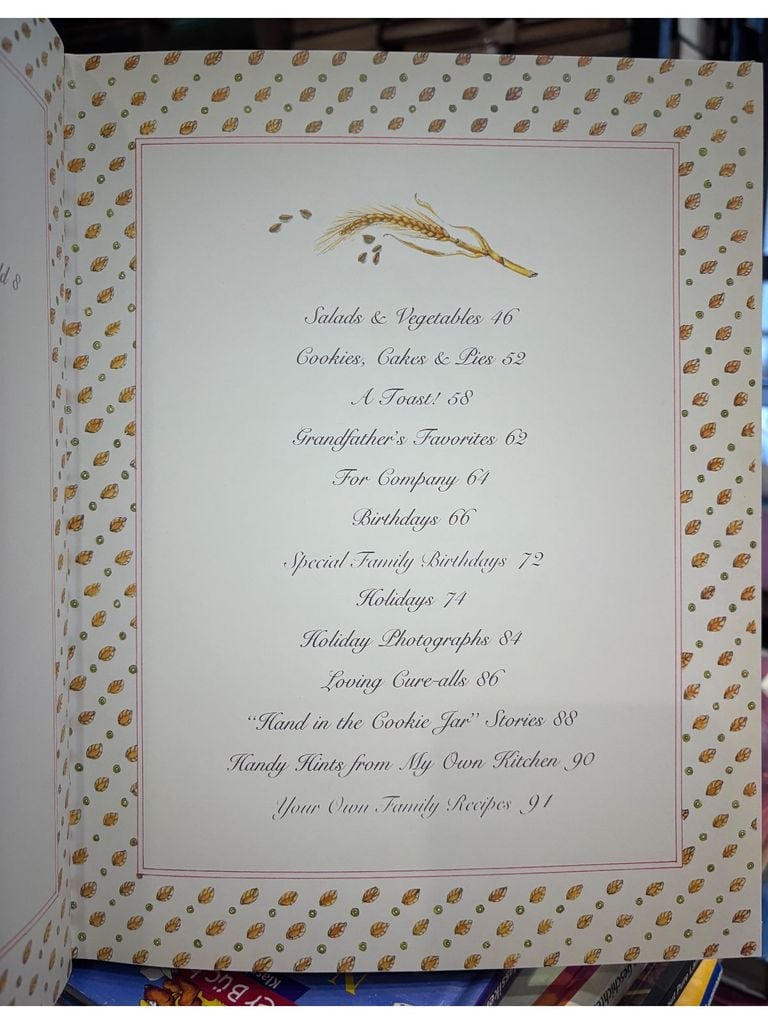 8
Salads & Vegetables 46
Cookies, Cakes & Pies 52
A Toast! 58
Grandfather's Favorites 62
For Company 64
Birthdays 66
Special Family Birthdays 72
Holidays 74
Holiday Photographs 84
Loving Cure-alls 86
"Hand in the Cookie Jar" Stories 88
Handy Hints from My Own Kitchen 90
Your Own Family Recipes 91